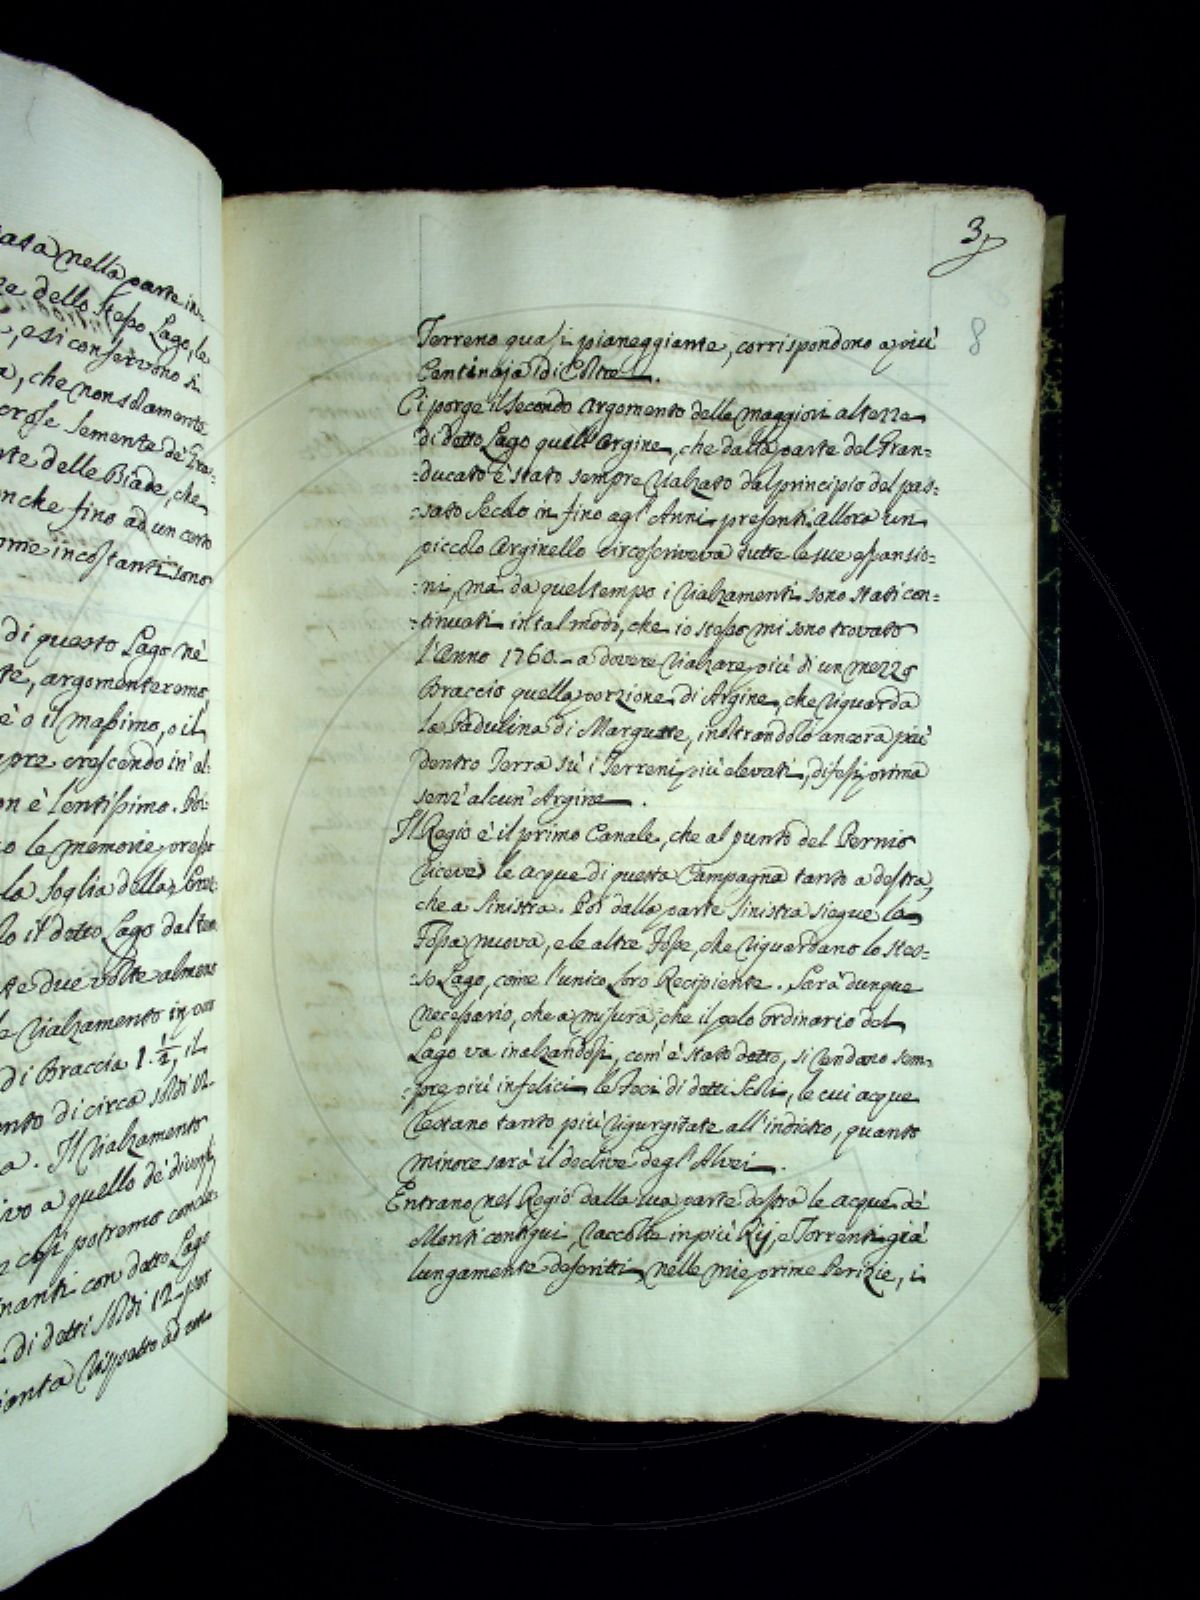 nella parte in-
dello stesso Lago, le
, e si conservono si
, che non solamente
semente de' Gra-
delle Biade, che
anche fino ad un certo
come incostanti sono
di questo Lago nè
, argomenteremo
è o il massimo, o il
crescendo in al-
è lentissimo. Poi-
le memorie presso
la soglia della
il detto Lago dal
due volte almeno
rialzamento in
di Braccia 1. ½, il
di circa soldi 12
. Il rialzamento
a quello de' diversi
così potremo
con detto Lago
di detti soldi 12 per
rispetto ad un
3
8
Terreno quasi pianeggiante, corrispondono a più
Centinaja di Coltre.
Ci porge il secondo Argomento delle maggiori altezze
di detto Lago quell'Argine, che dalla parte del Gran=
=ducato è stato sempre rialzato dal principio del pas=
=sato Secolo in fino agl'Anni presenti: allora un
piccolo Arginello circoscriveva tutte le sue espansio=
=ni, mà da quel tempo i rialzamenti sono stati con=
=tinuati in tal modo, che io stesso mi sono trovato
l'Anno 1760. a dovere rialzare più di un mezzo
Braccio quella porzione di Argine, che riguarda
la Padulina di Margutte, inoltrandolo ancora più
dentro Terra sù i Terreni più elevati, difesi prima
senz'alcun'Argine.
Il Regio è il primo Canale, che al punto del Pernio
riceve le acque di questa Campagna tanto a destra,
che a sinistra. Poi dalla parte sinistra siegue la
Fossa nuova, e le altre Fosse, che riguardano lo stes=
=so Lago, come l'unico loro Recipiente. Sarà dunque
necessario, che a misura, che il pelo ordinario del
Lago va inalzandosi, com'è stato detto, si rendano sem=
=pre più infelici le Foci di detti Scoli, le cui acque
restano tanto più rigurgitate all'indietro, quanto
minore sarà il declive degl'Alvei.
Entrano nel Regio dalla sua parte destra le acque de'
Monti contigui, raccolte in più Rij, e Torrenti già
lungamente descritti nelle mie prime Perizie, i